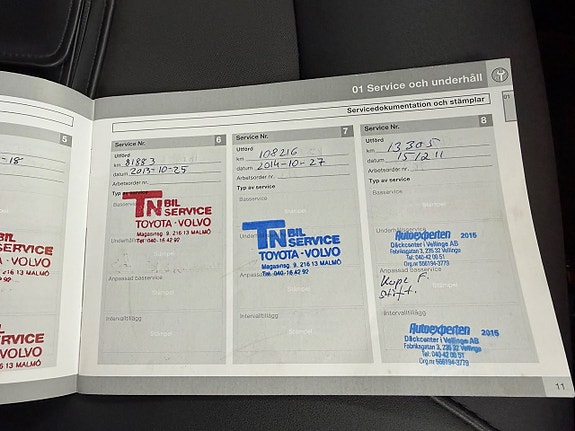 01 Service och underhåll
Servicedokumentation och stämplar
01
5
-18
BIL
SERVICE
TOYOTA - VOLVO
9, 216 13 MALMÖ
Service Nr. 6
Utförd
km 81883
datum 2013-10-25
Arbetsorder nr.
Typ av service
Basservice
TN BIL
SERVICE
TOYOTA - VOLVO
Magasinsg. 9, 216 13 MALMÖ
Tel 040-16 42 92
Stämpel
Anpassad basservice
Intervalltillägg
Stämpel
Service Nr. 7
Utförd
km 108216
datum 2014-10-27
Arbetsorder nr.
Typ av service
Basservice
TN BIL
SERVICE
TOYOTA - VOLVO
Magasinsg. 9, 216 13 MALMÖ
Tel 040-16 42 92
Anpassad basservice
Intervalltillägg
Stämpel
Service Nr. 8
Utförd
km
datum 15/2 11
Arbetsorder nr.
Typ av service
Basservice
Autoexperten 2015
Däckcenter i Vellinge AB
Fabriksgatan 3, 235 32 Vellinge
Tel. 040-42 00 51
Org.nr 556194-3779
Anpassad basservice
Intervalltillägg
Autoexperten 2015
Däckcenter i Vellinge AB
Fabriksgatan 3, 235 32 Vellinge
Tel. 040-42 00 51
Org.nr 556194-3779
11